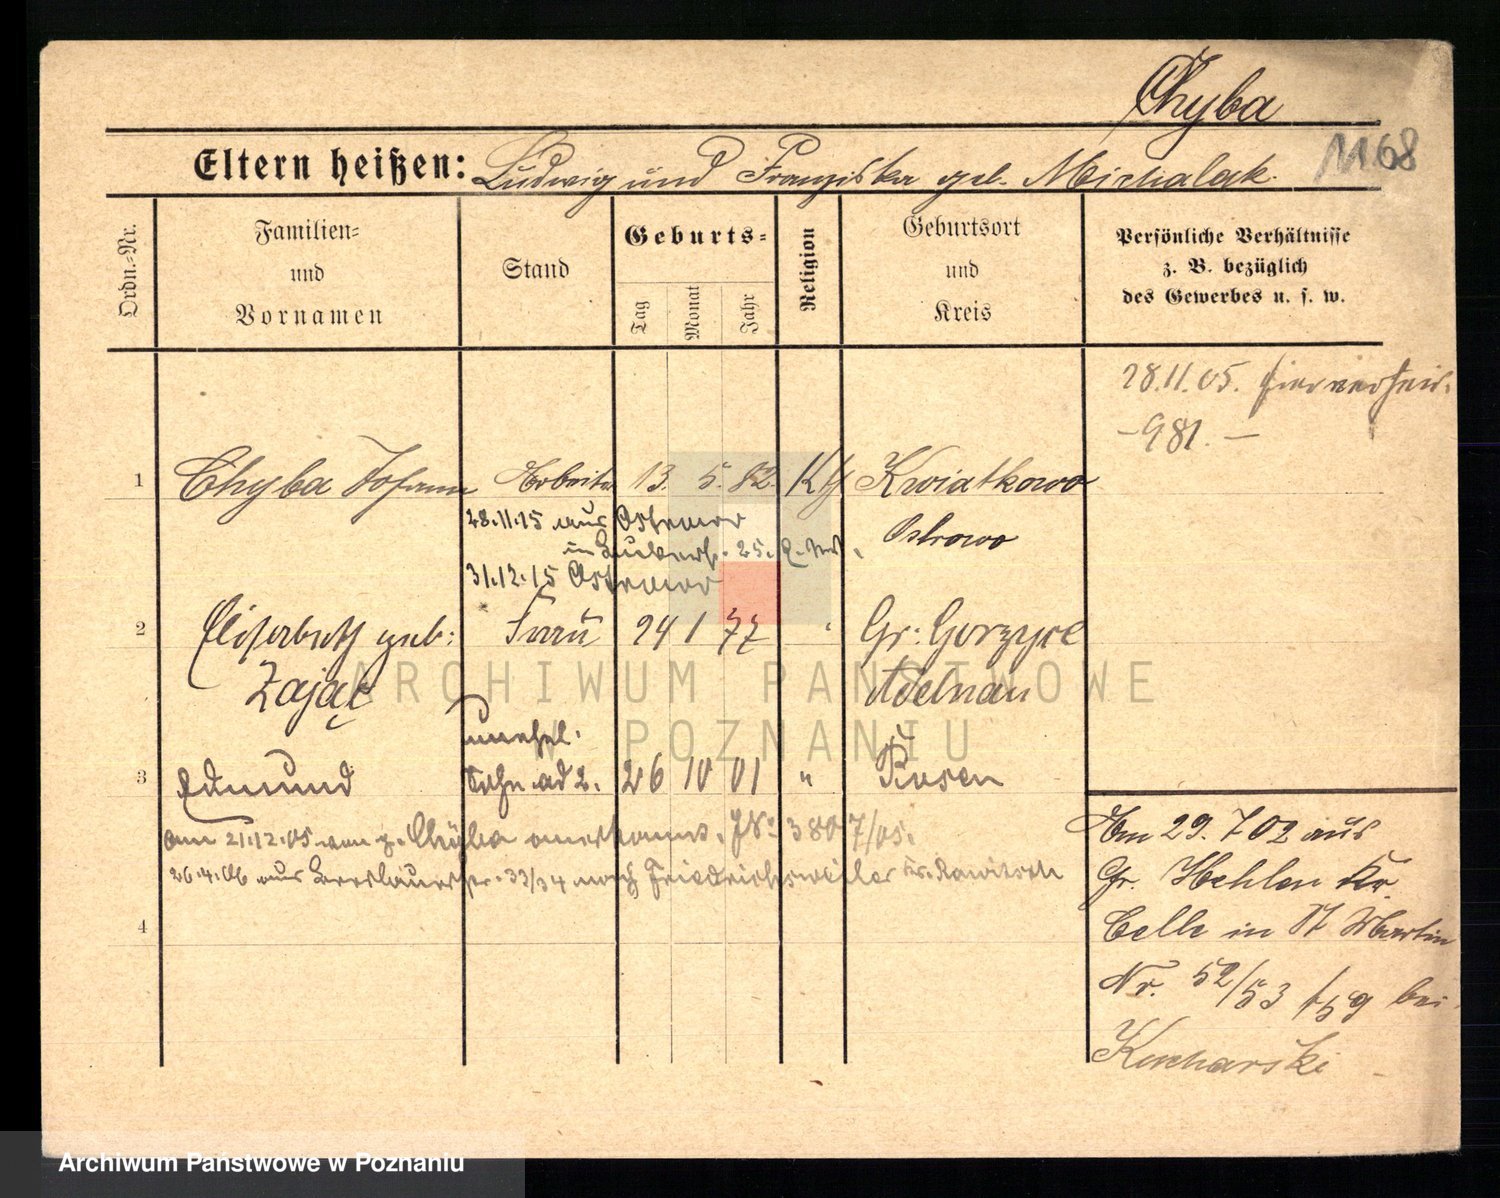 Chyba
1168
Eltern heißen: Ludwig und Franziska geb. Michalak.
Ordn.-Nr.
Familien-
und
Vornamen
Stand
Geburts-
Tag
Monat
Jahr
Religion
Geburtsort
und
Kreis
Persönliche Verhältnisse
z. B. bezüglich
des Gewerbes u. s. w.
28.11.05. hier verheir.
- 981. -
1 Chyba Johann Arbeiter 13. 5. 82. Kth Kwiatkowo
28.11.15 aus Ostrowo
Ostrowo
31.12.15
2 Elisabeth geb: Frau 24 1 77 " Gr: Gorzyce
Zając Adelnau
ARCHIWUM PAŃSTWOWE
W POZNANIU
unehel.
3 Edmund Sohn ad 2. 26 10 01 " Posen
am 21.12.05 von p. Chyba anerkannt. 3807/05.
26.4.06 aus Breslauerstr. 33/34 nach Friedrichsweiler Kr. Rawitsch
4
Am 29. 7 02 aus
Gr. Hehlen Kr
Celle in St Martin
Nr. 52/53 bei
Kucharski
Archiwum Państwowe w Poznaniu